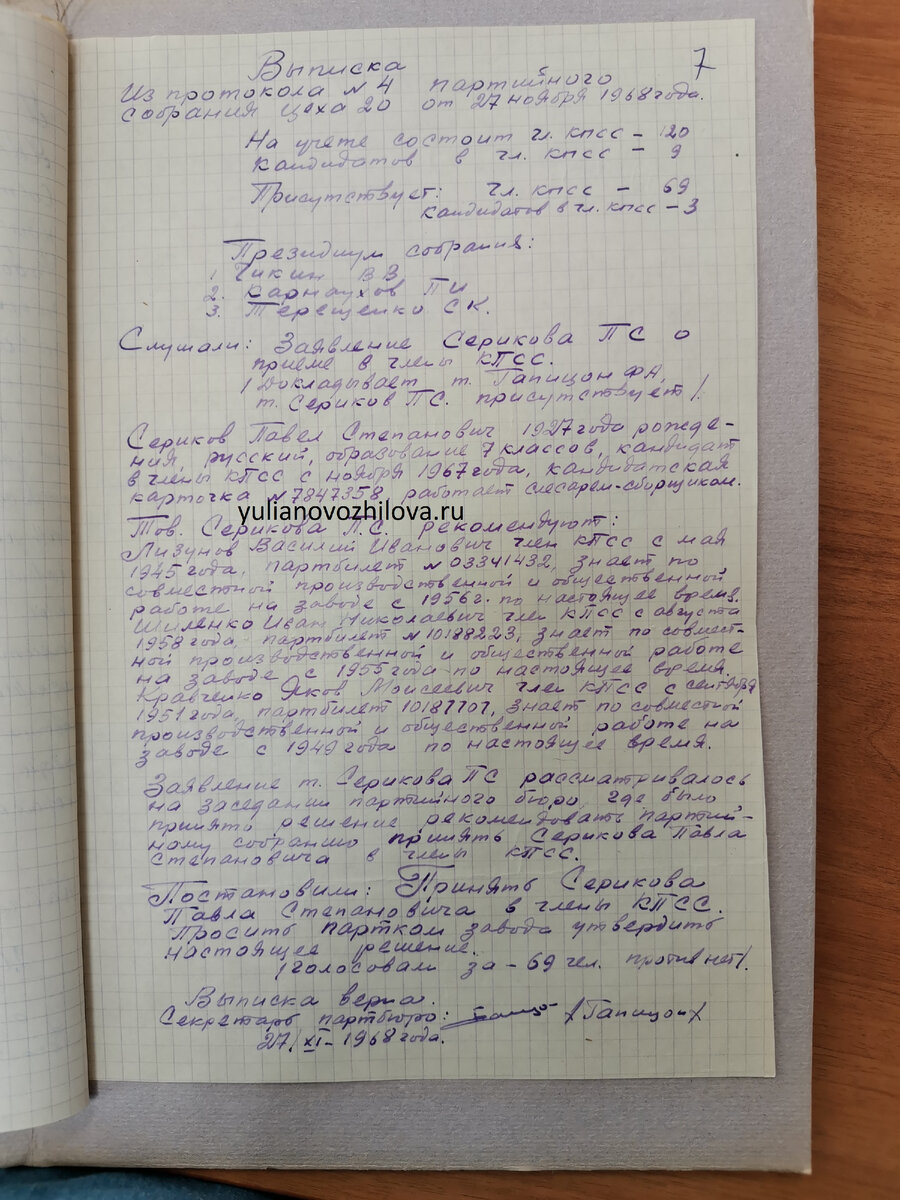 7
Выписка
Из протокола №4 партийного
собрания цеха 20 от 27 ноября 1968 года.
На учете состоит чл. кпсс - 120
кандидатов в чл. кпсс - 9
Присутствует: чл. кпсс - 69
кандидатов в чл. кпсс - 3
Президиум собрания:
1. Чикин ВЗ
2. Карнаухов ПИ
3. Терещенко СК.
Слушали: Заявление Серикова ПС о
приеме в члены КПСС.
/Докладывает т. Гапицон ФА,
т. Сериков ПС. присутствует/.
Сериков Павел Степанович 1927 года рожде-
ния, русский, образование 7 классов, кандидат
в члены КПСС с ноября 1967 года, кандидатская
карточка №7847358, работает слесарем-сборщиком.
yulianovozhilova.ru
Тов. Серикова П.С. рекомендуют:
Лизунов Василий Иванович член КПСС с мая
1945 года, партбилет №03341432, знает по
совместной производственной и общественной
работе на заводе с 1956г. по настоящее время.
Шиленко Иван Николаевич член КПСС с августа
1958 года, партбилет №10188223, знает по совмест-
ной производственной и общественной работе
на заводе с 1955 года по настоящее время.
Кравченко Яков Моисеевич член КПСС с сентября
1951 года, партбилет 10187707, знает по совместной
производственной и общественной работе на
заводе с 1949 года по настоящее время.
Заявление т. Серикова ПС рассматривалось
на заседании партийного бюро, где было
принято решение рекомендовать партий-
ному собранию принять Серикова Павла
Степановича в члены КПСС.
Постановили: Принять Серикова
Павла Степановича в члены КПСС.
Просить партком завода утвердить
настоящее решение.
/голосовали за - 69 чел. против нет/.
Выписка верна.
Секретарь партбюро: /Гапицон/
27/XI-1968 года.